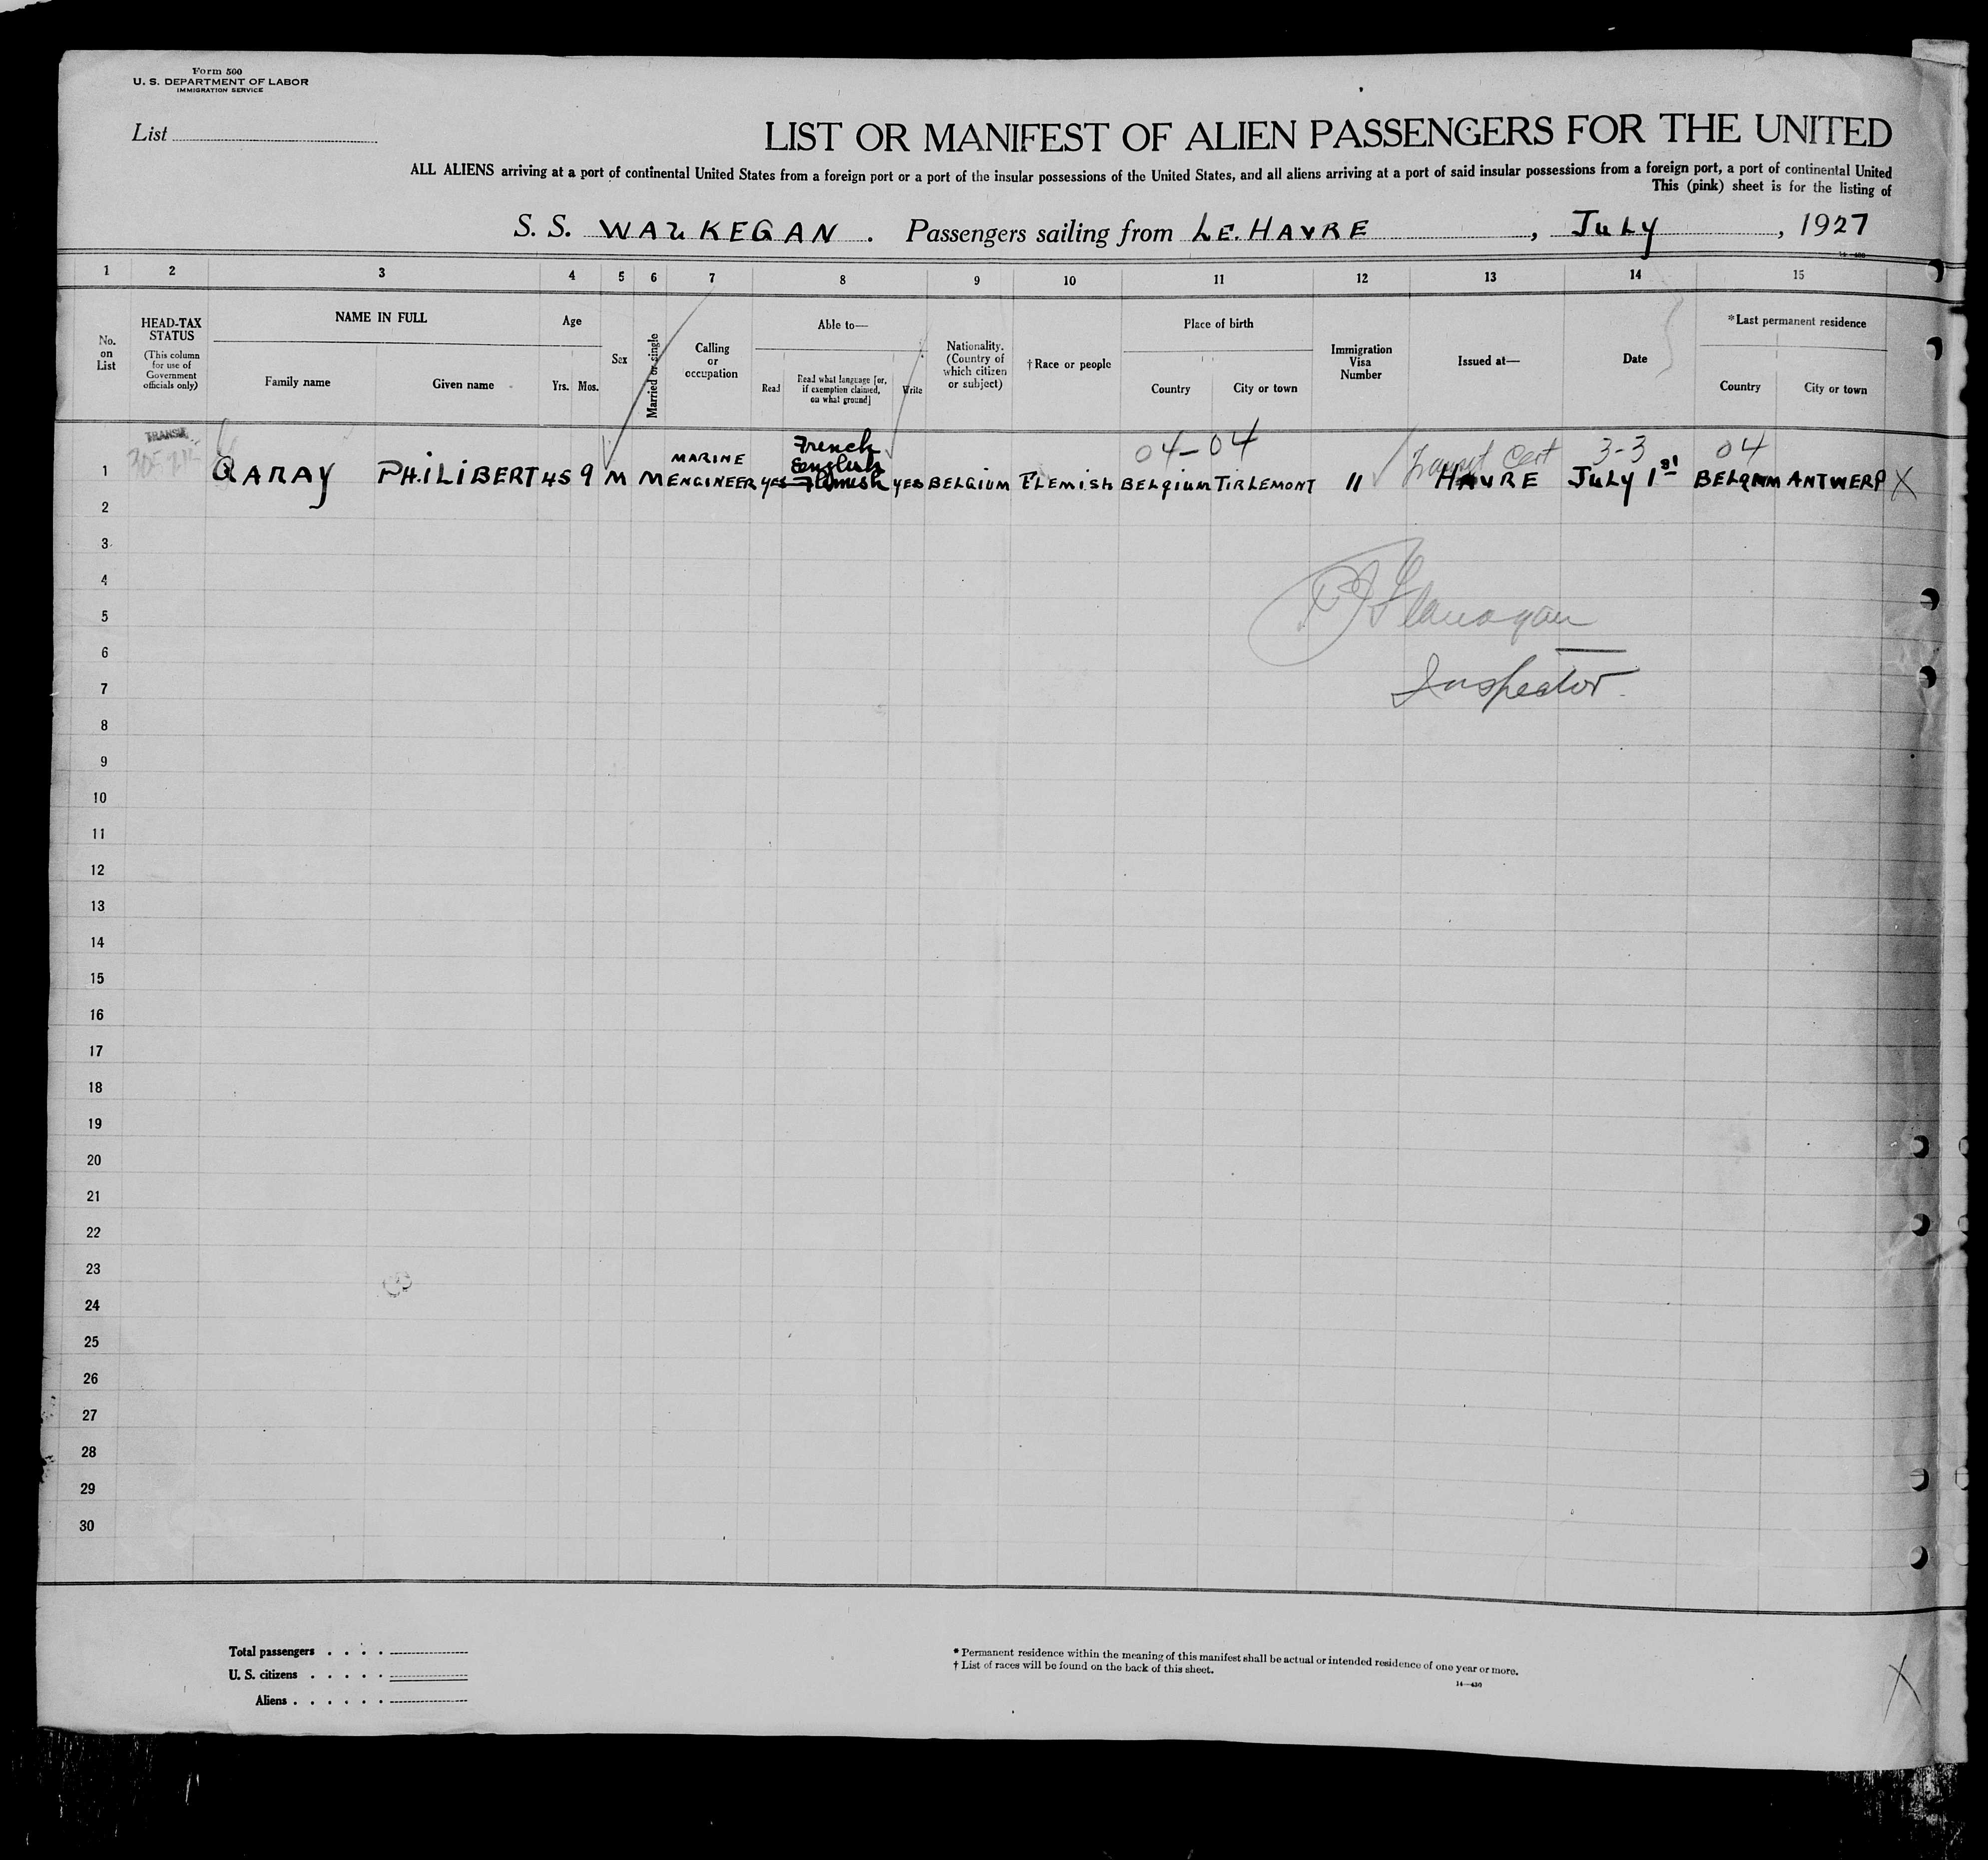 Form 500
U. S. DEPARTMENT OF LABOR
IMMIGRATION SERVICE
List
LIST OR MANIFEST OF ALIEN PASSENGERS FOR THE UNITED
ALL ALIENS arriving at a port of continental United States from a foreign port or a port of the insular possessions of the United States, and all aliens arriving at a port of said insular possessions from a foreign port, a port of continental United
This (pink) sheet is for the listing of
S. S. WAUKEGAN . Passengers sailing from LE. HAVRE , July , 1927
1 2 3 4 5 6 7 8 9 10 11 12 13 14 15
No. on List
HEAD-TAX STATUS
(This column for use of Government officials only)
NAME IN FULL
Family name Given name
Age
Yrs. Mos.
Sex
Married or single
Calling or occupation
Able to—
Read
Read what language [or, if exemption claimed, on what ground]
Write
Nationality. (Country of which citizen or subject)
†Race or people
Place of birth
Country City or town
Immigration Visa Number
Issued at—
Date
*Last permanent residence
Country City or town
TRANSIT
04-04 Transit Cert 3-3 04
French
MARINE English
1 GARAY PHILIBERT 45 9 M M ENGINEER yes Flemish yes BELGIUM FLEMISH BELGIUM TIRLEMONT 11 HAVRE July 1st BELGIUM ANTWERP X
2
3
4
5
Flanagan
6
7
Inspector
8
9
10
11
12
13
14
15
16
17
18
19
20
21
22
23
24
25
26
27
28
29
30
Total passengers . . . .
U. S. citizens . . . . .
Aliens . . . . . .
* Permanent residence within the meaning of this manifest shall be actual or intended residence of one year or more.
† List of races will be found on the back of this sheet.
14—430
X